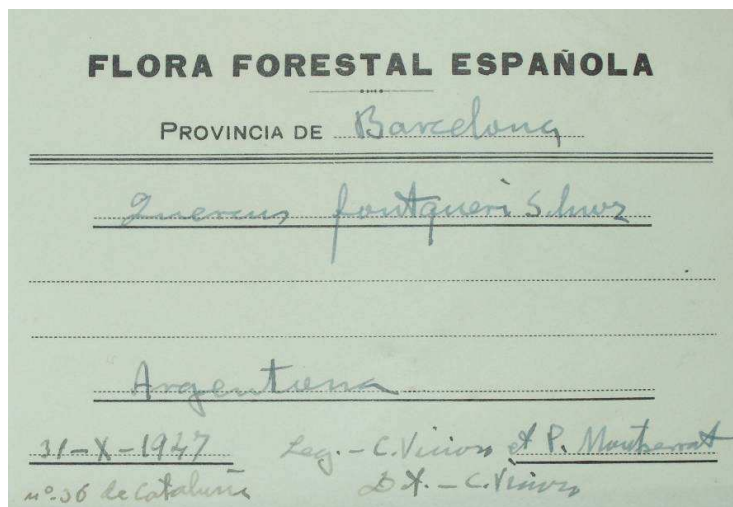 FLORA FORESTAL ESPAÑOLA
PROVINCIA DE Barcelona
Quercus fontqueri Schwz
Argentona
31-X-1947 Leg. - C. Vicioso et P. Montserrat
nº-36 de Cataluña Dt. - C. Vicioso